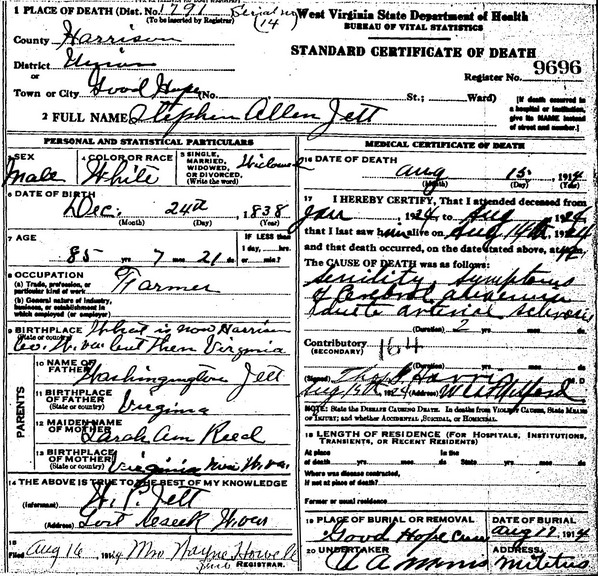 1 PLACE OF DEATH (Dist. No. 1791 Serial no 14
(To be inserted by Registrar)
West Virginia State Department of Health
BUREAU OF VITAL STATISTICS
County Harrison
STANDARD CERTIFICATE OF DEATH
District Union
or
Register No. 9696
Town or City Good Hope (No. St.; Ward)
[If death occurred in a hospital or institution, give its NAME instead of street and number.]
2 FULL NAME Stephen Allen Jett
PERSONAL AND STATISTICAL PARTICULARS
3 SEX
Male
4 COLOR OR RACE
White
5 SINGLE, MARRIED, WIDOWED, OR DIVORCED
(Write the word)
6 DATE OF BIRTH
Dec. 24th, 1838
(Month) (Day) (Year)
7 AGE
85 yrs 7 mos 21 ds
IF LESS than
1 day, hrs.
or min.?
8 OCCUPATION
(a) Trade, profession, or particular kind of work
Farmer
(b) General nature of industry, business, or establishment in which employed (or employer)
9 BIRTHPLACE What is now Harrison
(State or country) Co. W. Va. but then Virginia
PARENTS
10 NAME OF FATHER
Washington Jett
11 BIRTHPLACE OF FATHER
(State or country)
Virginia
12 MAIDEN NAME OF MOTHER
Sarah Ann Reed
13 BIRTHPLACE OF MOTHER
(State or country)
Virginia now W. Va.
14 THE ABOVE IS TRUE TO THE BEST OF MY KNOWLEDGE
(Informant) W. P. Jett
(Address) Lost Creek W Va
15
Filed Aug 16, 1924 Mrs Wayne Howell
REGISTRAR.
MEDICAL CERTIFICATE OF DEATH
16 DATE OF DEATH
Aug 15, 1924
(Month) (Day) (Year)
17 I HEREBY CERTIFY, That I attended deceased from
Jan 1924, to Aug 1924
that I last saw him alive on Aug 14th, 1924
and that death occurred, on the date stated above, at
The CAUSE OF DEATH was as follows:
Senility, symptoms
of cerebral
due to arterial sclerosis
(Duration) 2 yrs mos ds
Contributory 164
(SECONDARY)
(Duration) yrs mos ds
(Signed) Harris M. D
Aug 15th, 1924 (Address) W Milford
NOTE: State the DISEASE CAUSING DEATH. In deaths from VIOLENT CAUSES, State MEANS OF INJURY; and whether ACCIDENTAL, SUICIDAL, or HOMICIDAL.
18 LENGTH OF RESIDENCE (FOR HOSPITALS, INSTITUTIONS, TRANSIENTS, OR RECENT RESIDENTS)
At place of death yrs mos ds In the State yrs mos ds
Where was disease contracted,
if not at place of death?
Former or usual residence
19 PLACE OF BURIAL OR REMOVAL
Good Hope Cem
DATE OF BURIAL
Aug 17 1924
20 UNDERTAKER
ADDRESS